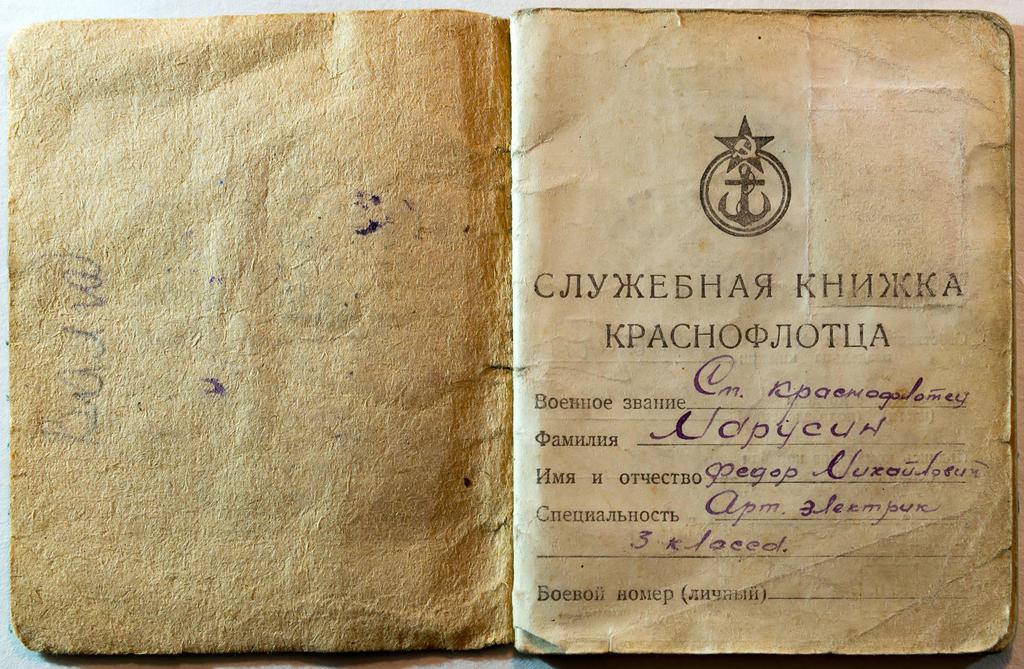 СЛУЖЕБНАЯ КНИЖКА
КРАСНОФЛОТЦА
Военное звание Ст. краснофлотец
Фамилия Марусин
Имя и отчество Федор Михайлович
Специальность Арт. электрик
3 класса.
Боевой номер (личный)